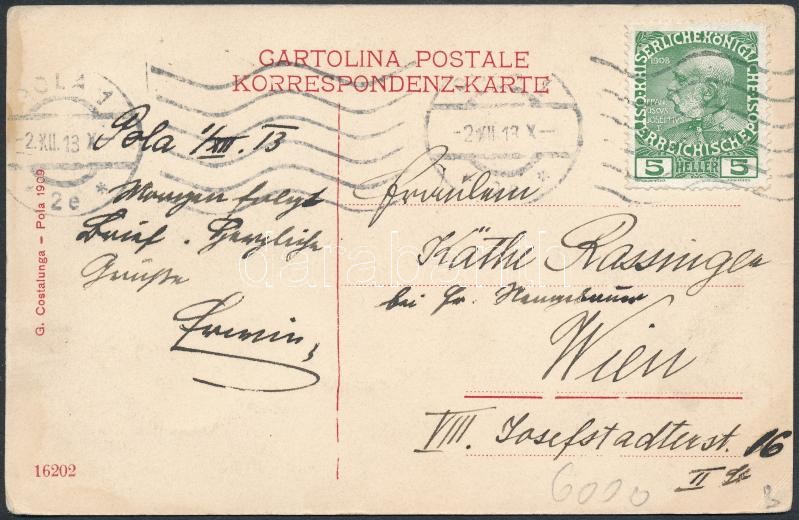 CARTOLINA POSTALE
KORRESPONDENZ-KARTE
POLA 1
-2.XII.13 X-
* 2e *
-2.XII.13 X-
1908
KAISERLICHE KÖNIGLICHE
ÖSTERREICHISCHE POST
5 HELLER 5
Pola 1/XII. 13
Morgen folgt
Brief. Herzliche
Grüße
Erwin
Fräulein
Käthe Rassinger
bei Fr. Neugebauer
Wien
VIII. Josefstadterst. 16
II St.
G. Costalunga – Pola 1909
16202
6000
B
darabanth